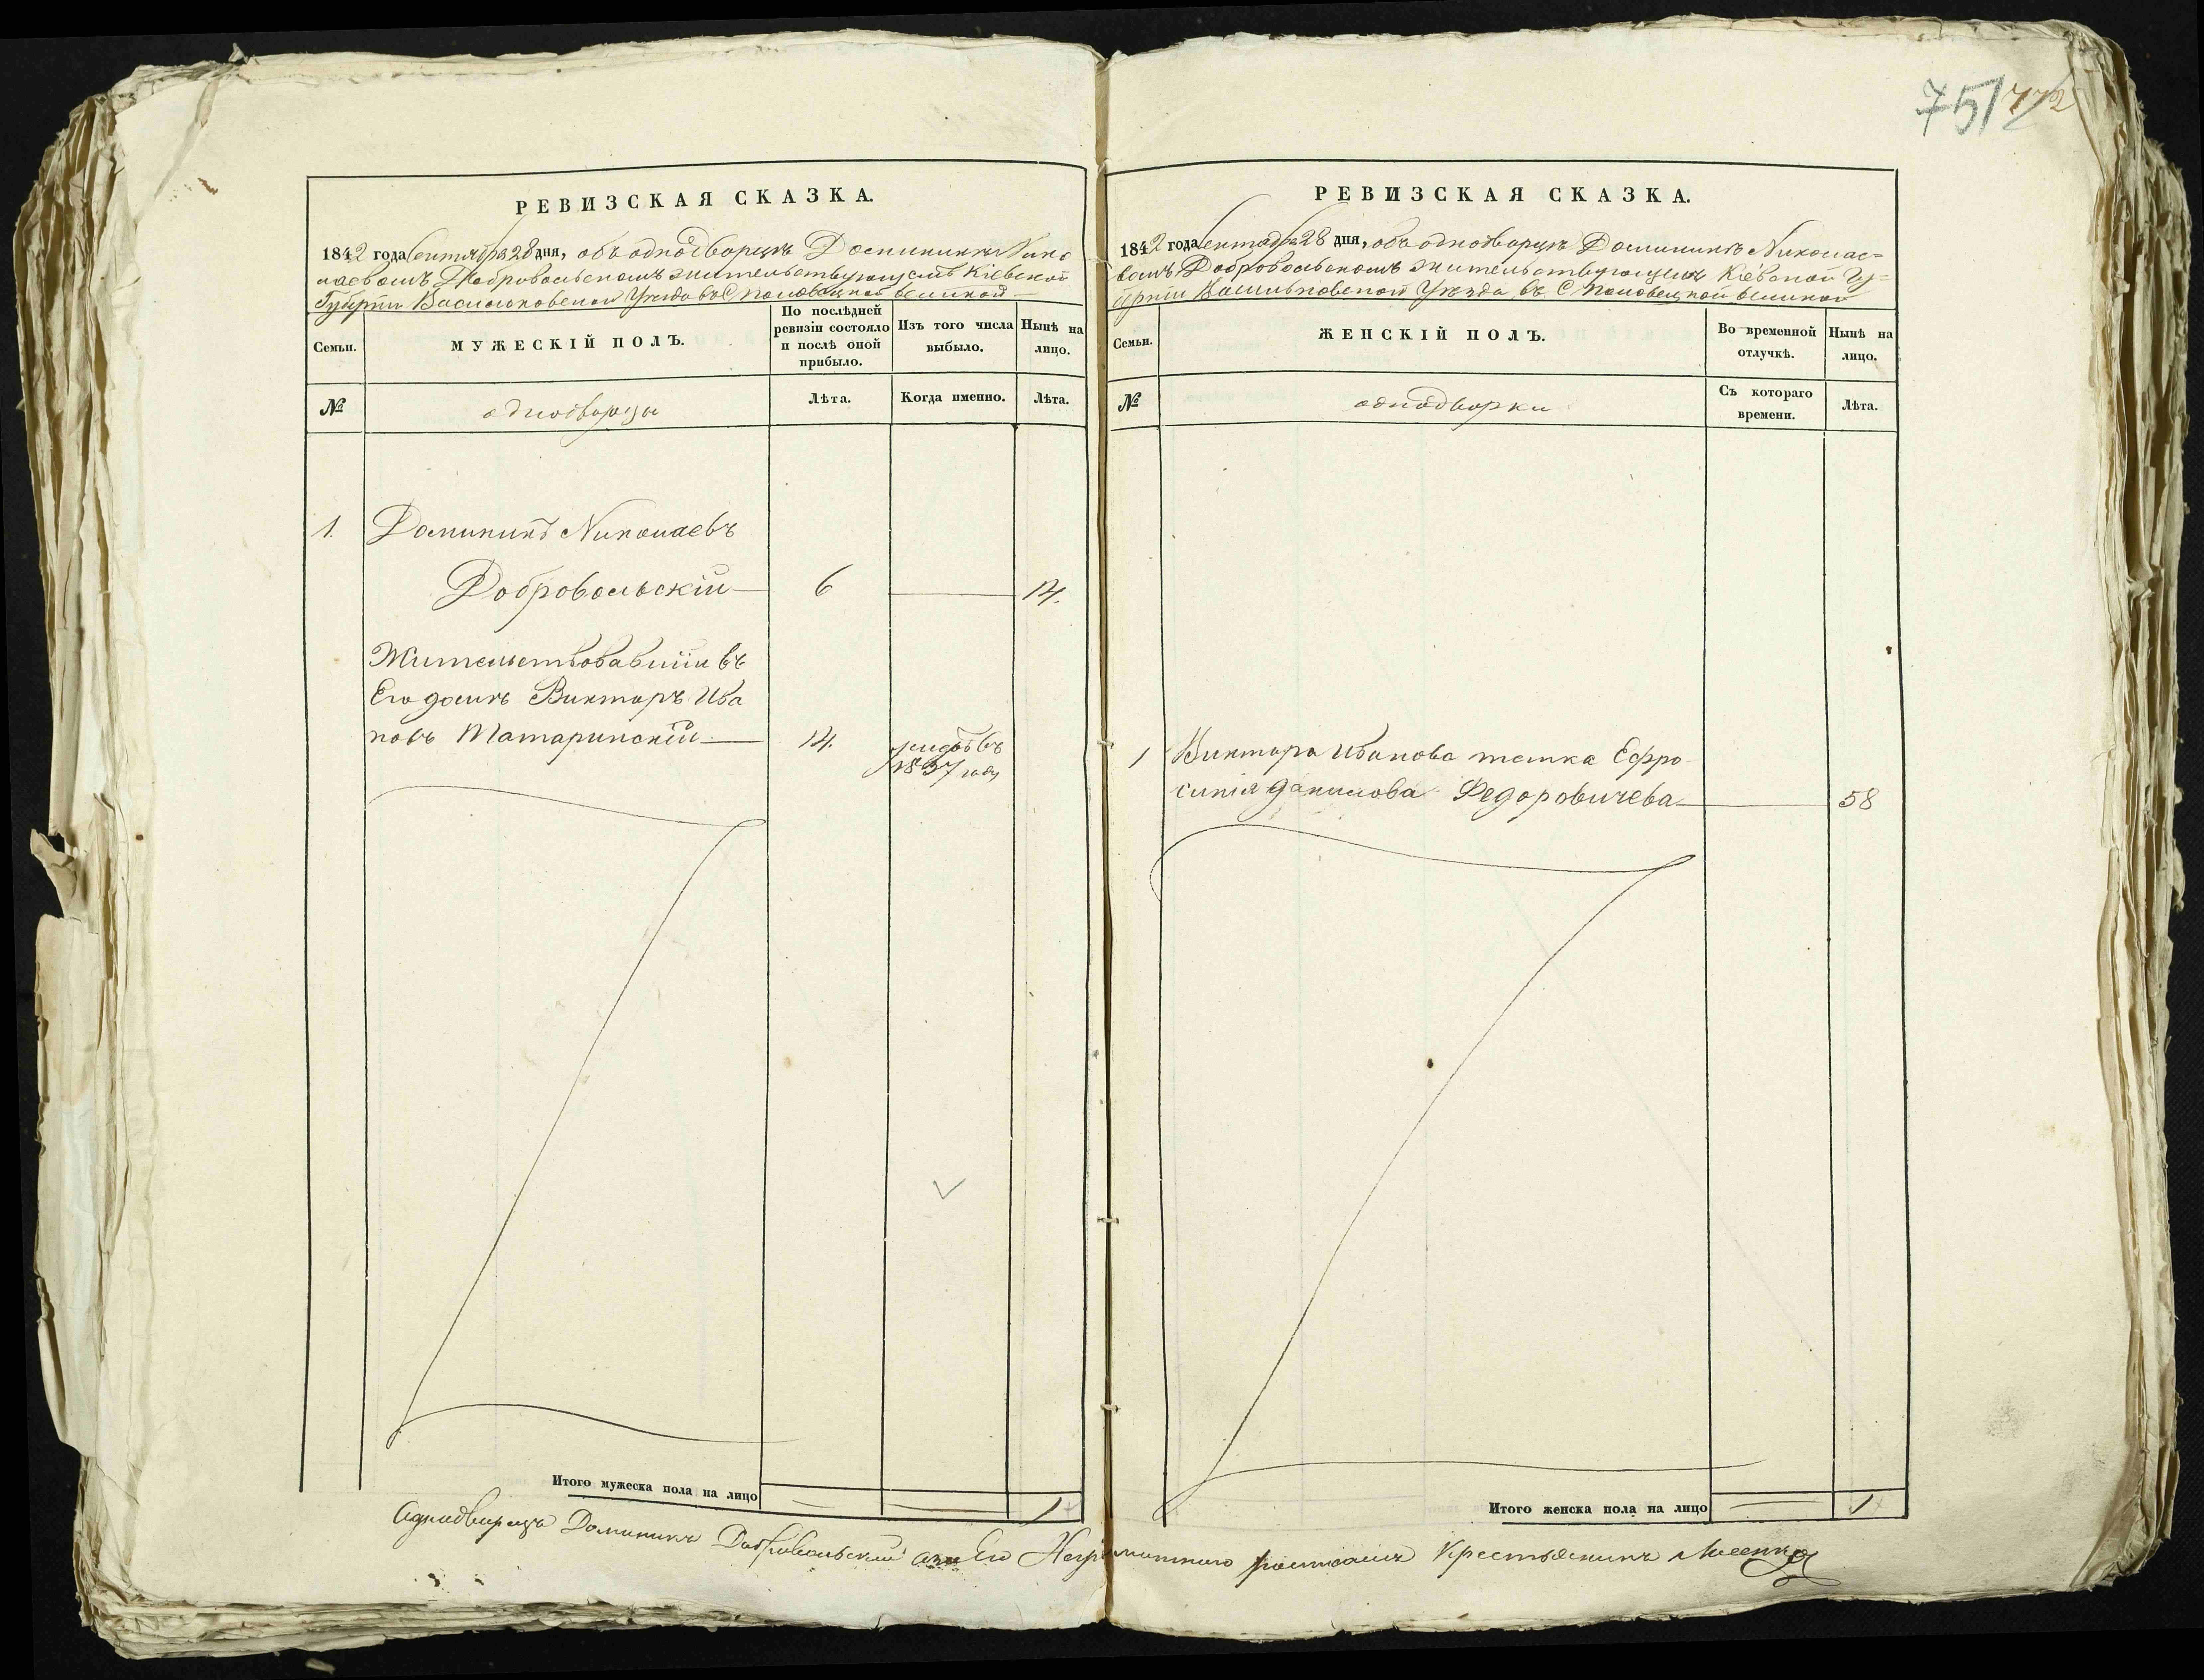 751 772
РЕВИЗСКАЯ СКАЗКА.
1842 года Сентября 28 дня, объ однодворцѣ Доминикѣ Нико
лаевомъ Добровольскомъ жительствующемъ Кіевской
Губерніи Васильковской Уѣзда въ С Половецкой великой
Семьи.
МУЖЕСКІЙ ПОЛЪ.
По послѣдней ревизіи состояло и послѣ оной прибыло.
Изъ того числа выбыло.
Нынѣ на лицо.
№
однодворцы
Лѣта.
Когда именно.
Лѣта.
1. Доминикъ Николаевъ
Добровольскій 6 14.
Жительствовавшій въ
Его домѣ Викторъ Ива
новъ Матаринскій 14. въ 1837 году
Итого мужеска пола на лицо 1
РЕВИЗСКАЯ СКАЗКА.
1842 года Сентября 28 дня, объ однодворцѣ Доминикѣ Николае-
вомъ Добровольскомъ жительствующемъ Кіевской Гу-
берніи Васильковской Уѣзда въ С Половецкой великой
Семьи.
ЖЕНСКІЙ ПОЛЪ.
Во временной отлучкѣ.
Нынѣ на лицо.
№
однодворки
Съ котораго времени.
Лѣта.
1 Виктора Иванова матка Ефро
синія данилова Федоровичева 58
Итого женска пола на лицо 1
Аднодворецъ Доминикъ Добровольский а за Его Неграмотного росписался Крестьянинъ